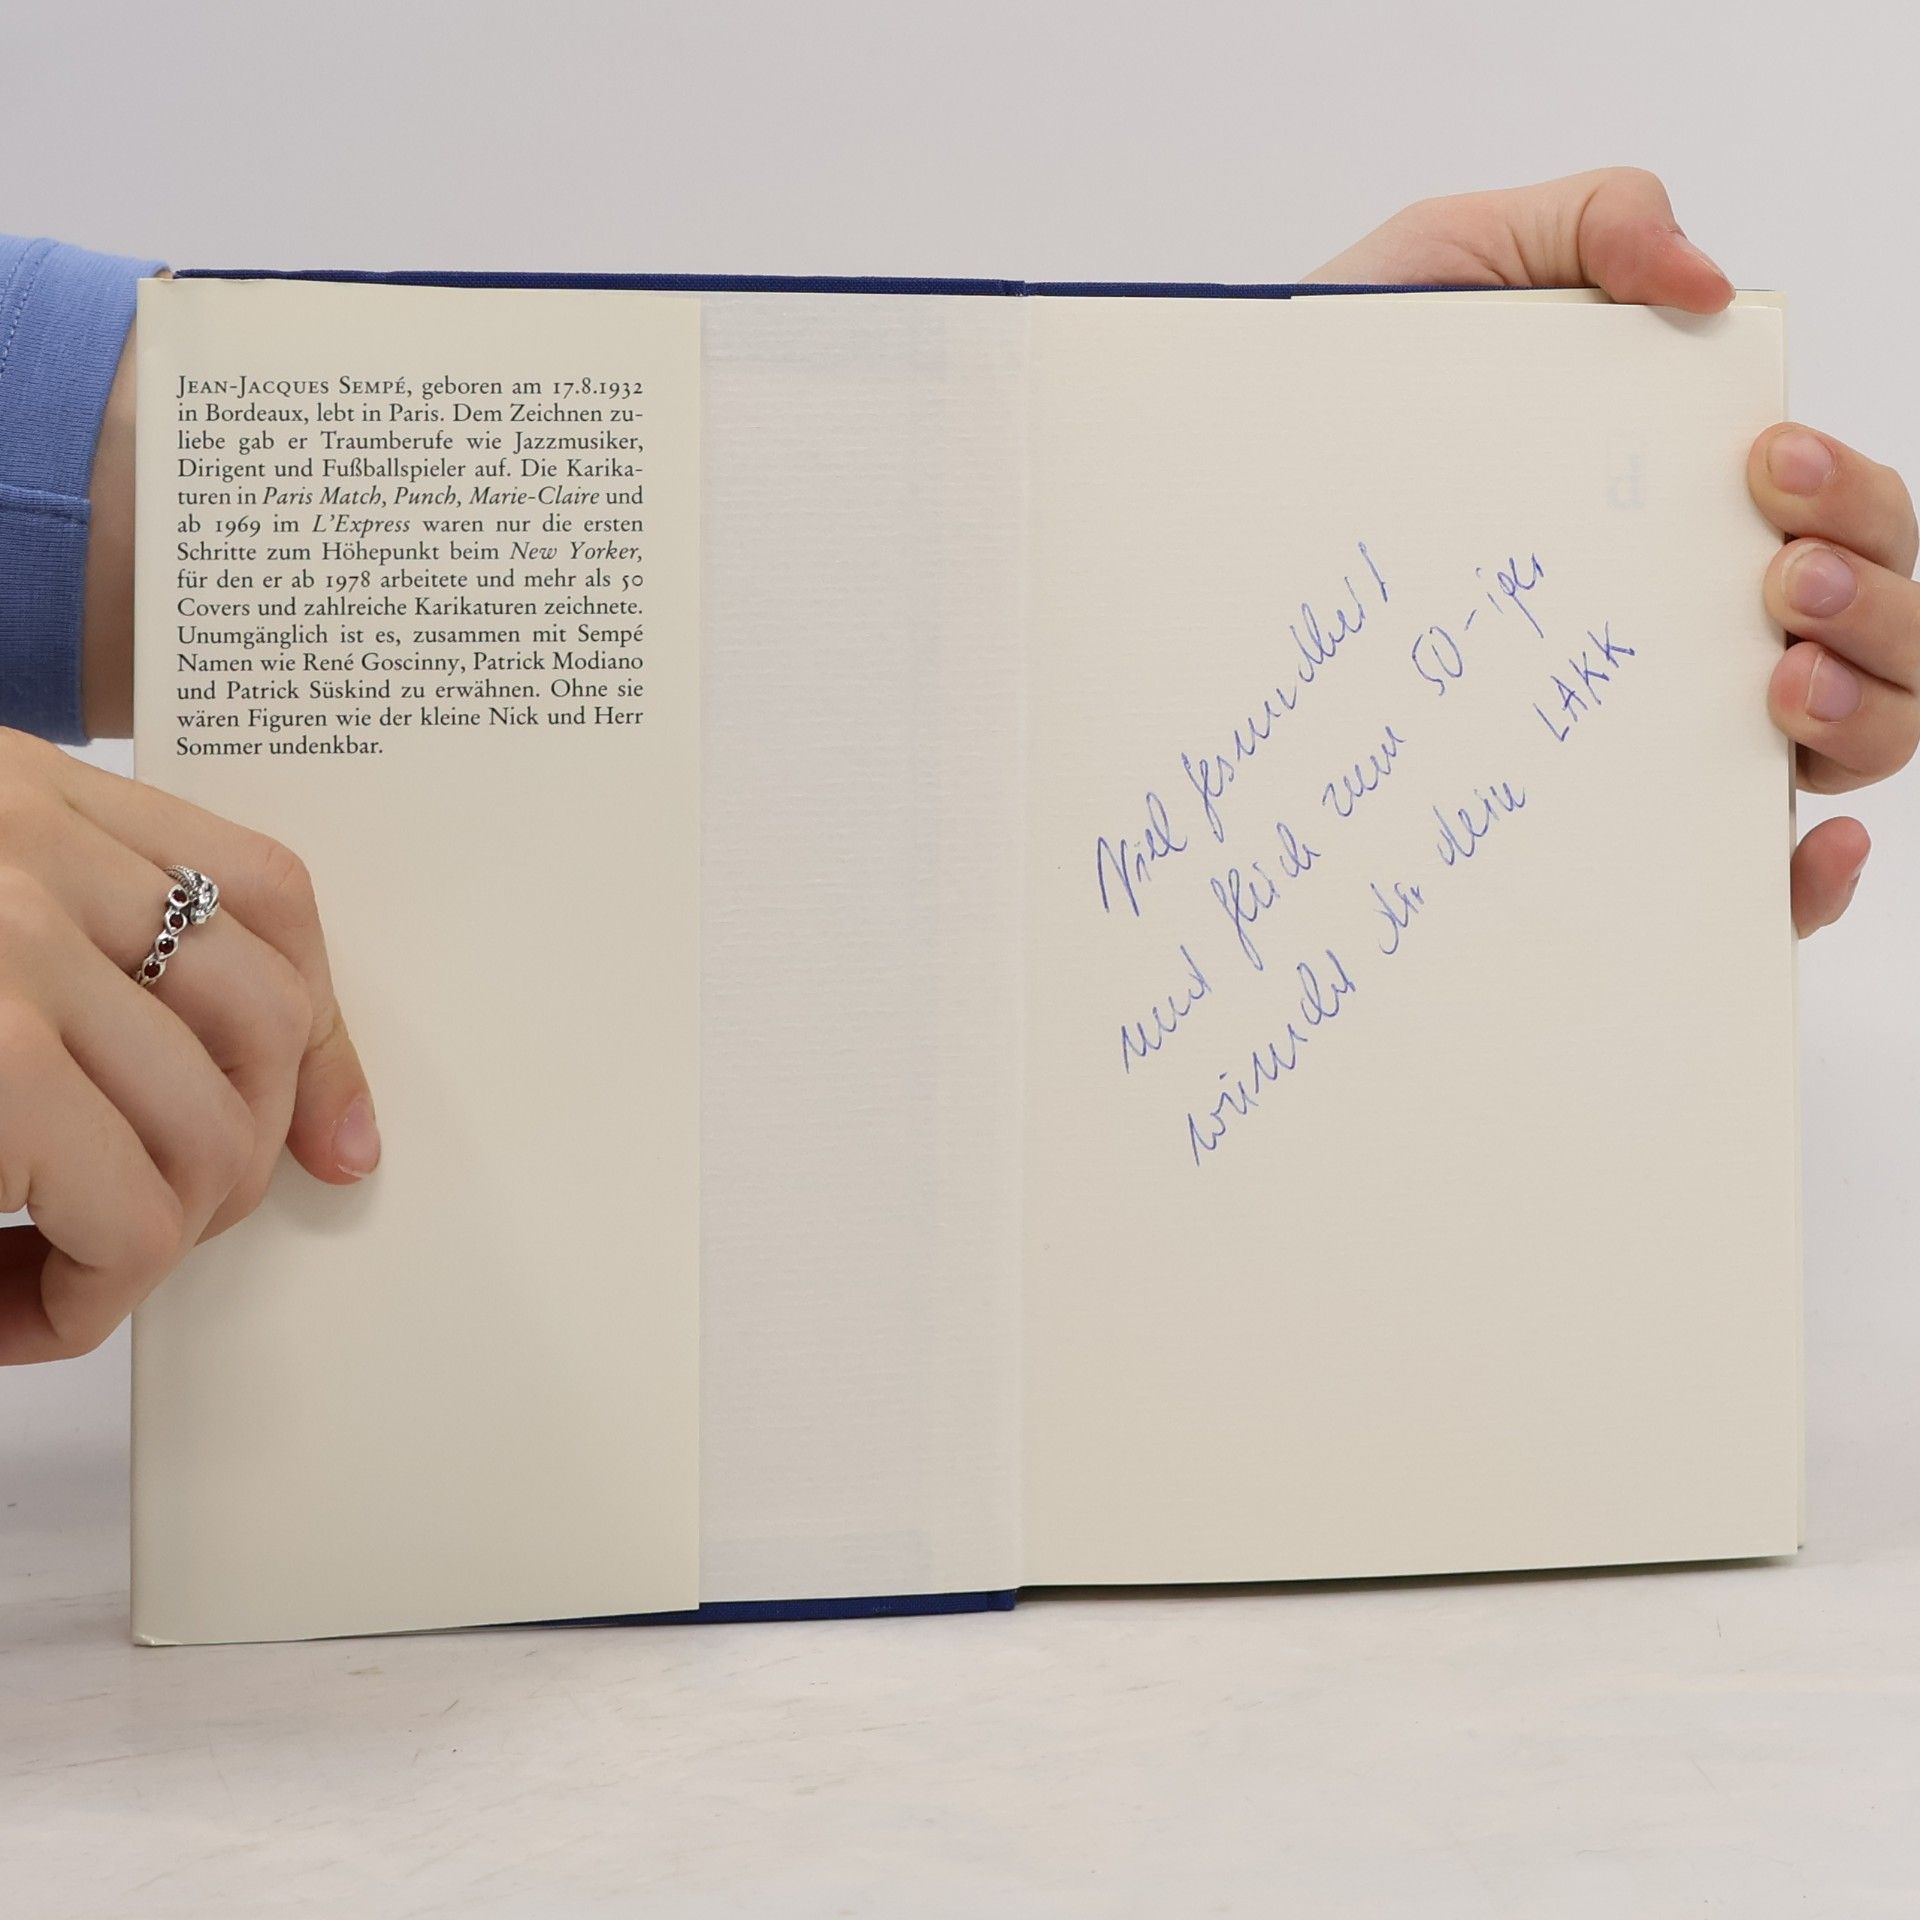 JEAN-JACQUES SEMPÉ, geboren am 17.8.1932
in Bordeaux, lebt in Paris. Dem Zeichnen zu-
liebe gab er Traumberufe wie Jazzmusiker,
Dirigent und Fußballspieler auf. Die Karika-
turen in Paris Match, Punch, Marie-Claire und
ab 1969 im L'Express waren nur die ersten
Schritte zum Höhepunkt beim New Yorker,
für den er ab 1978 arbeitete und mehr als 50
Covers und zahlreiche Karikaturen zeichnete.
Unumgänglich ist es, zusammen mit Sempé
Namen wie René Goscinny, Patrick Modiano
und Patrick Süskind zu erwähnen. Ohne sie
wären Figuren wie der kleine Nick und Herr
Sommer undenkbar.
Viel Gesundheit
und Glück zum 50-iger
wünscht dir dein LAKK